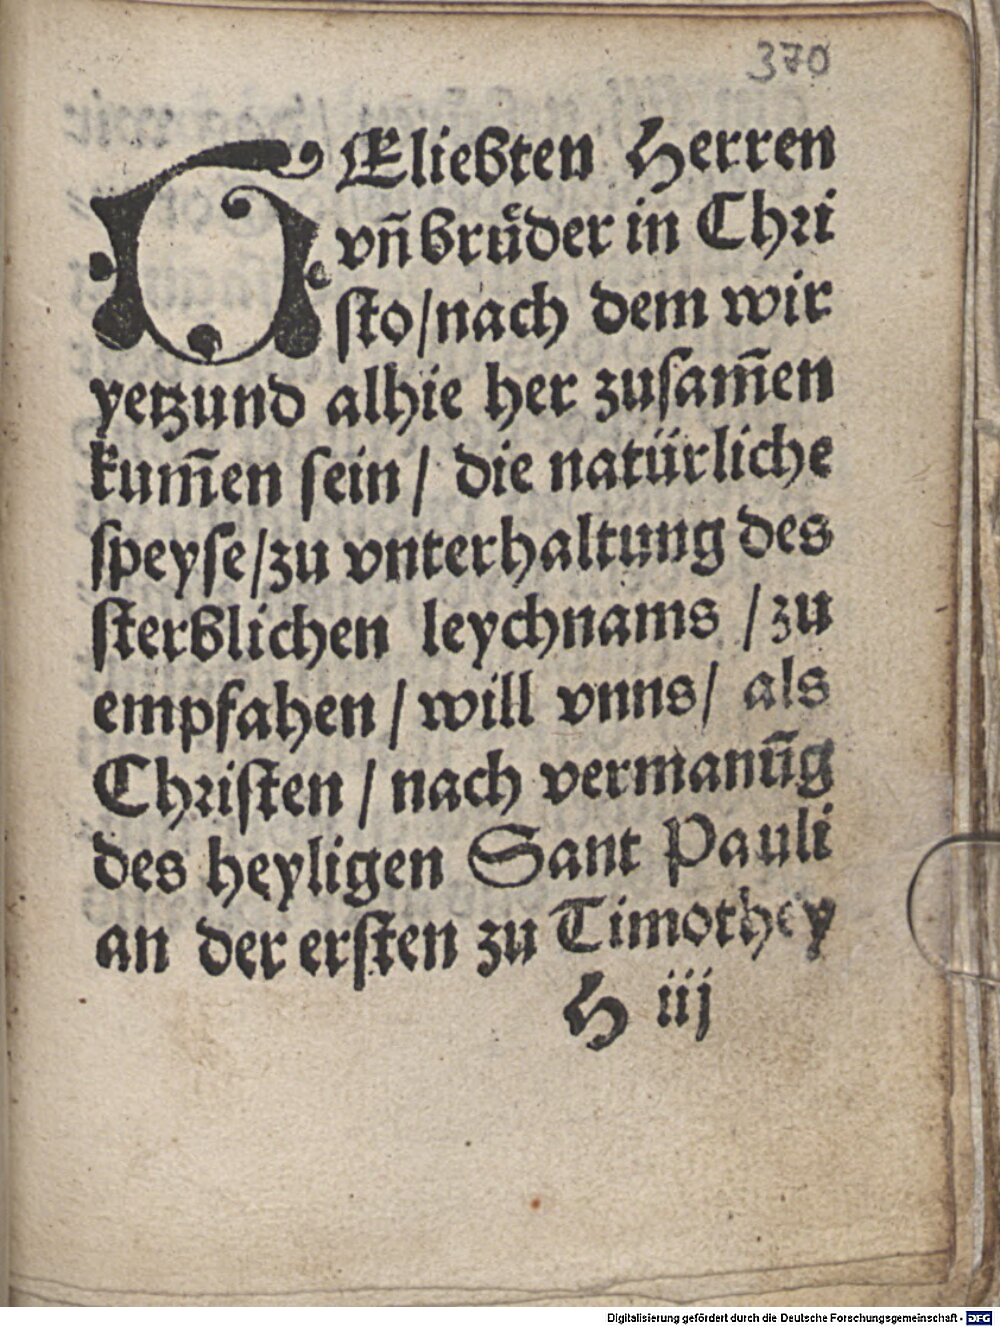 370
GEliebten Herren
vñ bruͤder in Chri
sto/nach dem wir
yetzund alhie her zusam̃en
kum̃en sein/ die natürliche
speyse/zu vnterhaltung des
sterblichen leychnams /zu
empfahen/ will vnns/ als
Christen/ nach vermanũg
des heyligen Sant Pauli
an der ersten zu Timothey
H iij
Digitalisierung gefördert durch die Deutsche Forschungsgemeinschaft - DFG